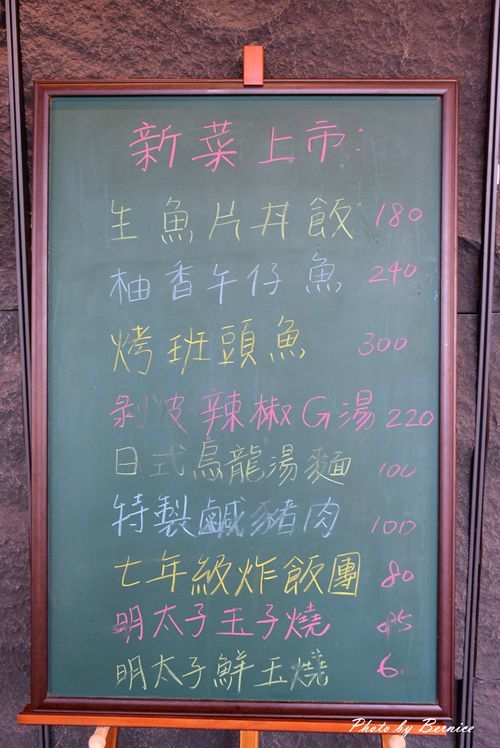 新菜上市:
生魚片丼飯 180
柚香午仔魚 240
烤班頭魚 300
剝皮辣椒G湯 220
日式烏龍湯麵 100
特製鹹豬肉 100
七年級炸飯團 80
明太子玉子燒
明太子鮮玉燒
Photo by Bernice